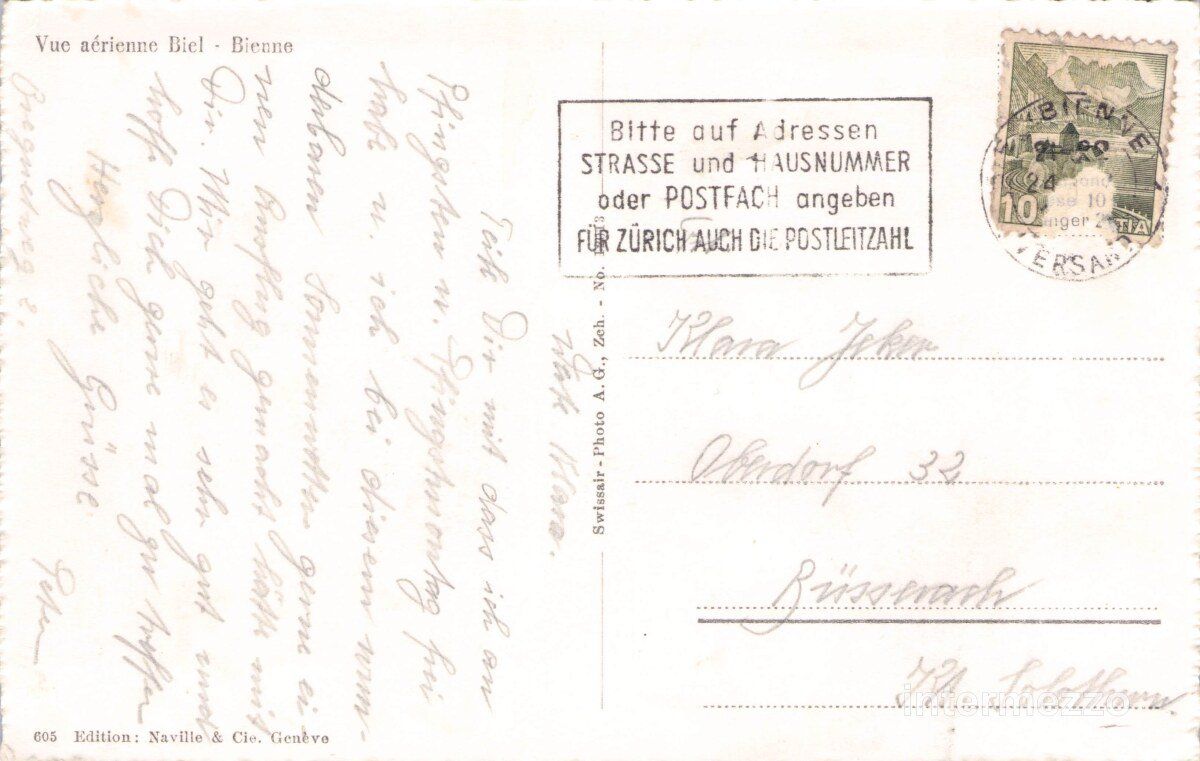 Vue aérienne Biel - Bienne
Bitte auf Adressen
STRASSE und HAUSNUMMER
oder POSTFACH angeben
FÜR ZÜRICH AUCH DIE POSTLEITZAHL
BIENNE
VERSAND
10
Klara Jeker
Oberdorf 32
Büsserach
Kt. Solothurn
Swissair - Photo A. G., Zch. - No.
Klara.
Teile Dir mit dass ich an
Pfingsten u. Pfingstmontag frei
habe u. ich bei diesem wun-
derbaren Sommerwetter gerne ei-
nen Ausflug gemacht hätte mit
Dir. Mir geht es sehr gut und
hoffe Dich gerne mal zu treffen
Herzliche Grüsse
Peter
605 Edition: Naville & Cie. Genève
intermezzo